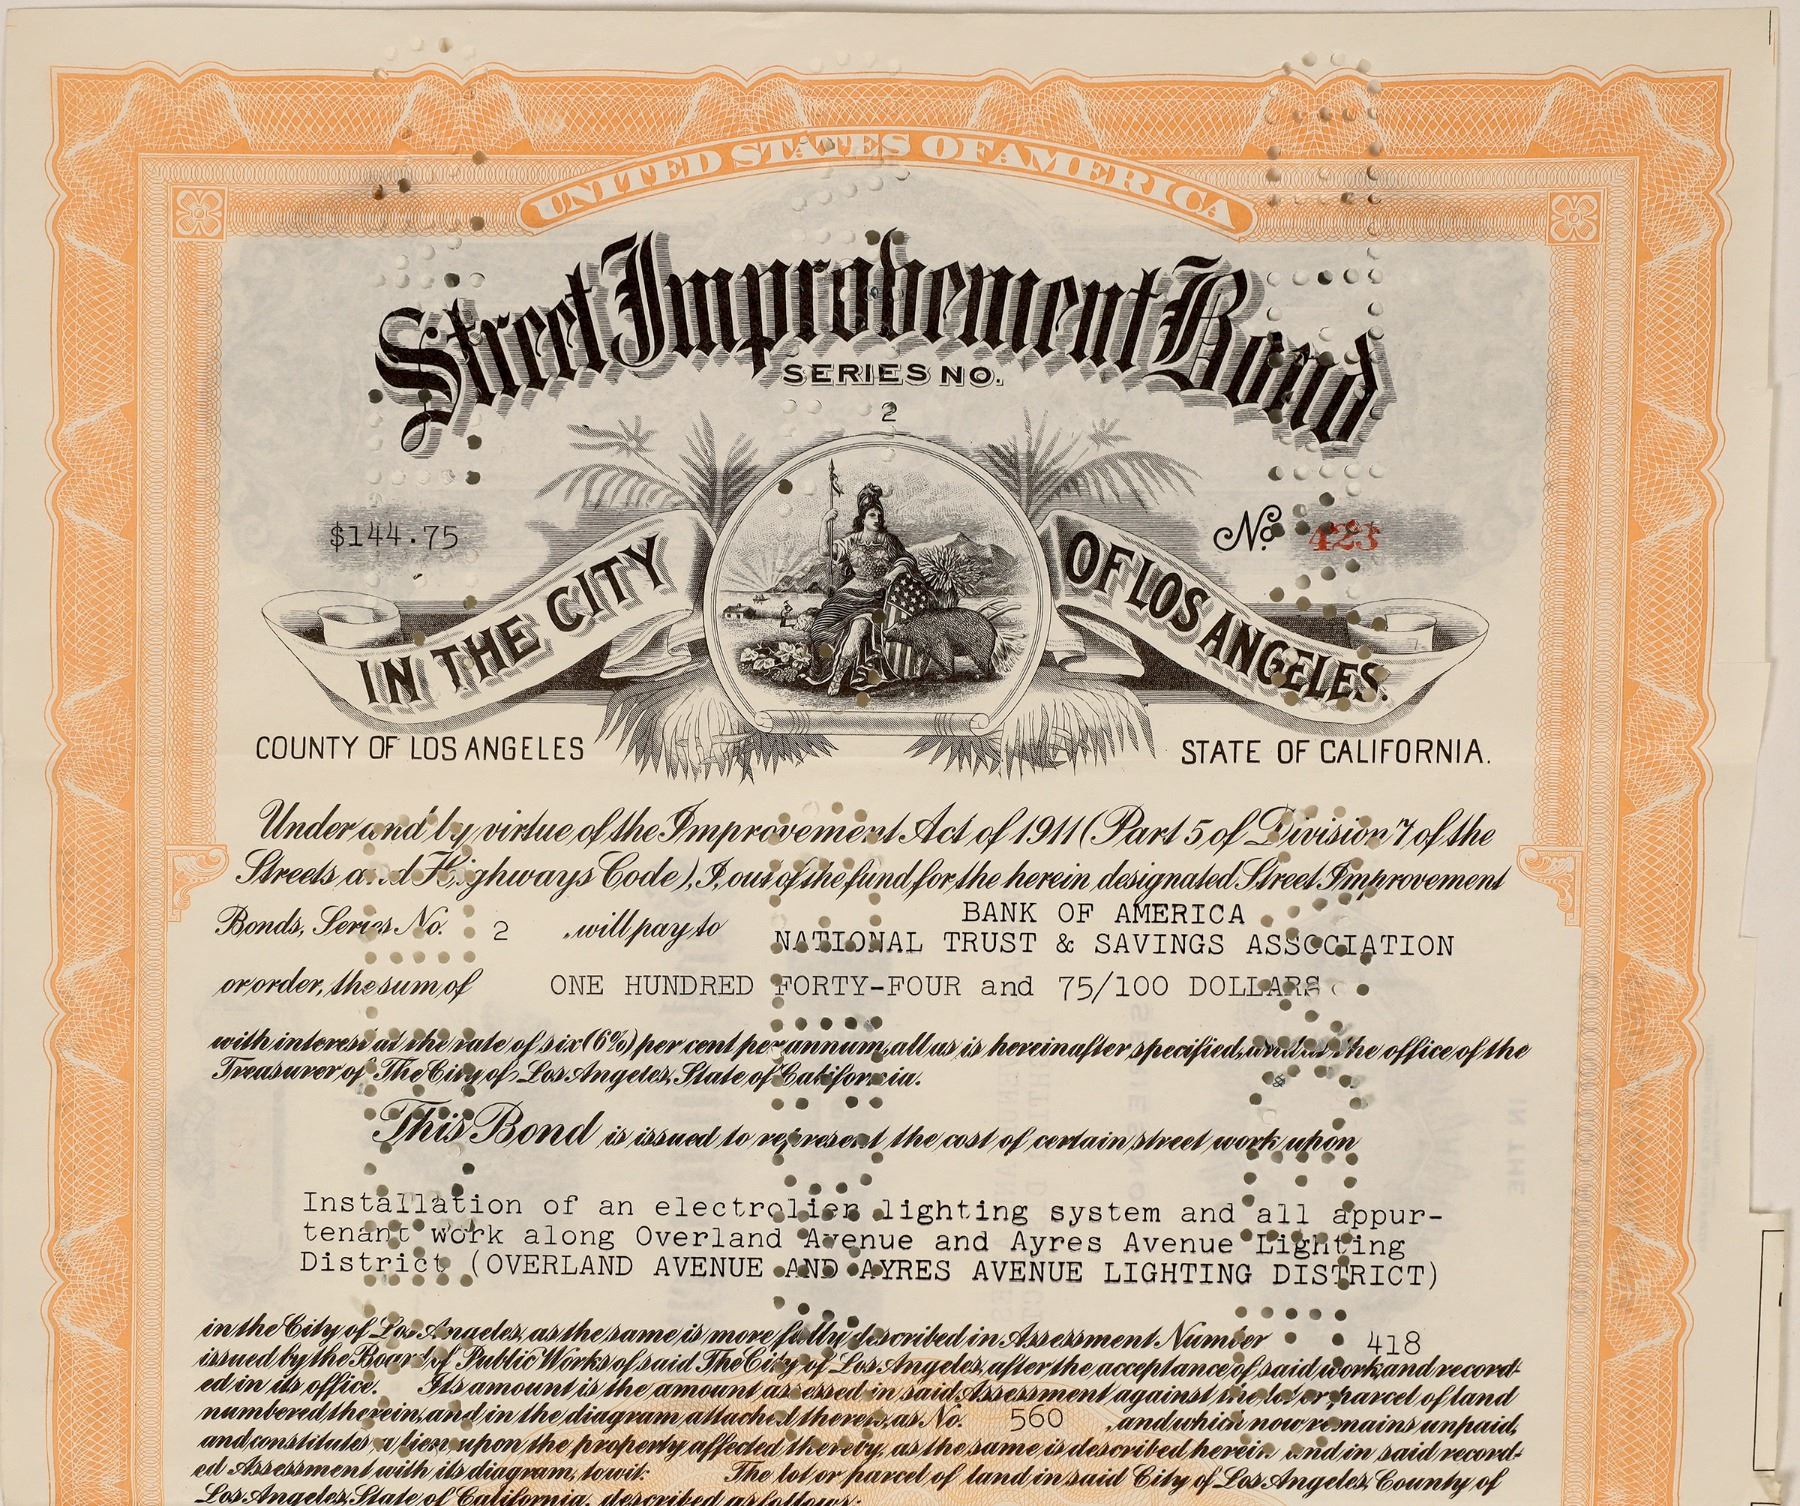 UNITED STATES OF AMERICA
Street Improvement Bond
SERIES NO.
2
$144.75
No. 423
IN THE CITY OF LOS ANGELES.
COUNTY OF LOS ANGELES
STATE OF CALIFORNIA.
Under and by virtue of the Improvement Act of 1911 (Part 5 of Division 7 of the
Streets and Highways Code), I, out of the fund, for the herein designated Street Improvement
Bonds, Series No. 2 will pay to BANK OF AMERICA
NATIONAL TRUST & SAVINGS ASSOCIATION
or order, the sum of ONE HUNDRED FORTY-FOUR and 75/100 DOLLARS
with interest at the rate of six (6%) per cent per annum, all as is hereinafter specified, and at the office of the
Treasurer of The City of Los Angeles, State of California.
This Bond is issued to represent the cost of certain street work upon
Installation of an electrolier lighting system and all appur-
tenant work along Overland Avenue and Ayres Avenue Lighting
District (OVERLAND AVENUE AND AYRES AVENUE LIGHTING DISTRICT)
in the City of Los Angeles, as the same is more fully described in Assessment Number 418
issued by the Board of Public Works of said The City of Los Angeles, after the acceptance of said work, and record-
ed in its office. Its amount is the amount assessed in said Assessment against the lot or parcel of land
numbered therein, and in the diagram attached thereto, as No. 560 , and which now remains unpaid,
and constitutes a lien upon the property affected thereby, as the same is described herein and in said record-
ed Assessment with its diagram, to wit: The lot or parcel of land in said City of Los Angeles, County of
Los Angeles, State of California, described as follows: